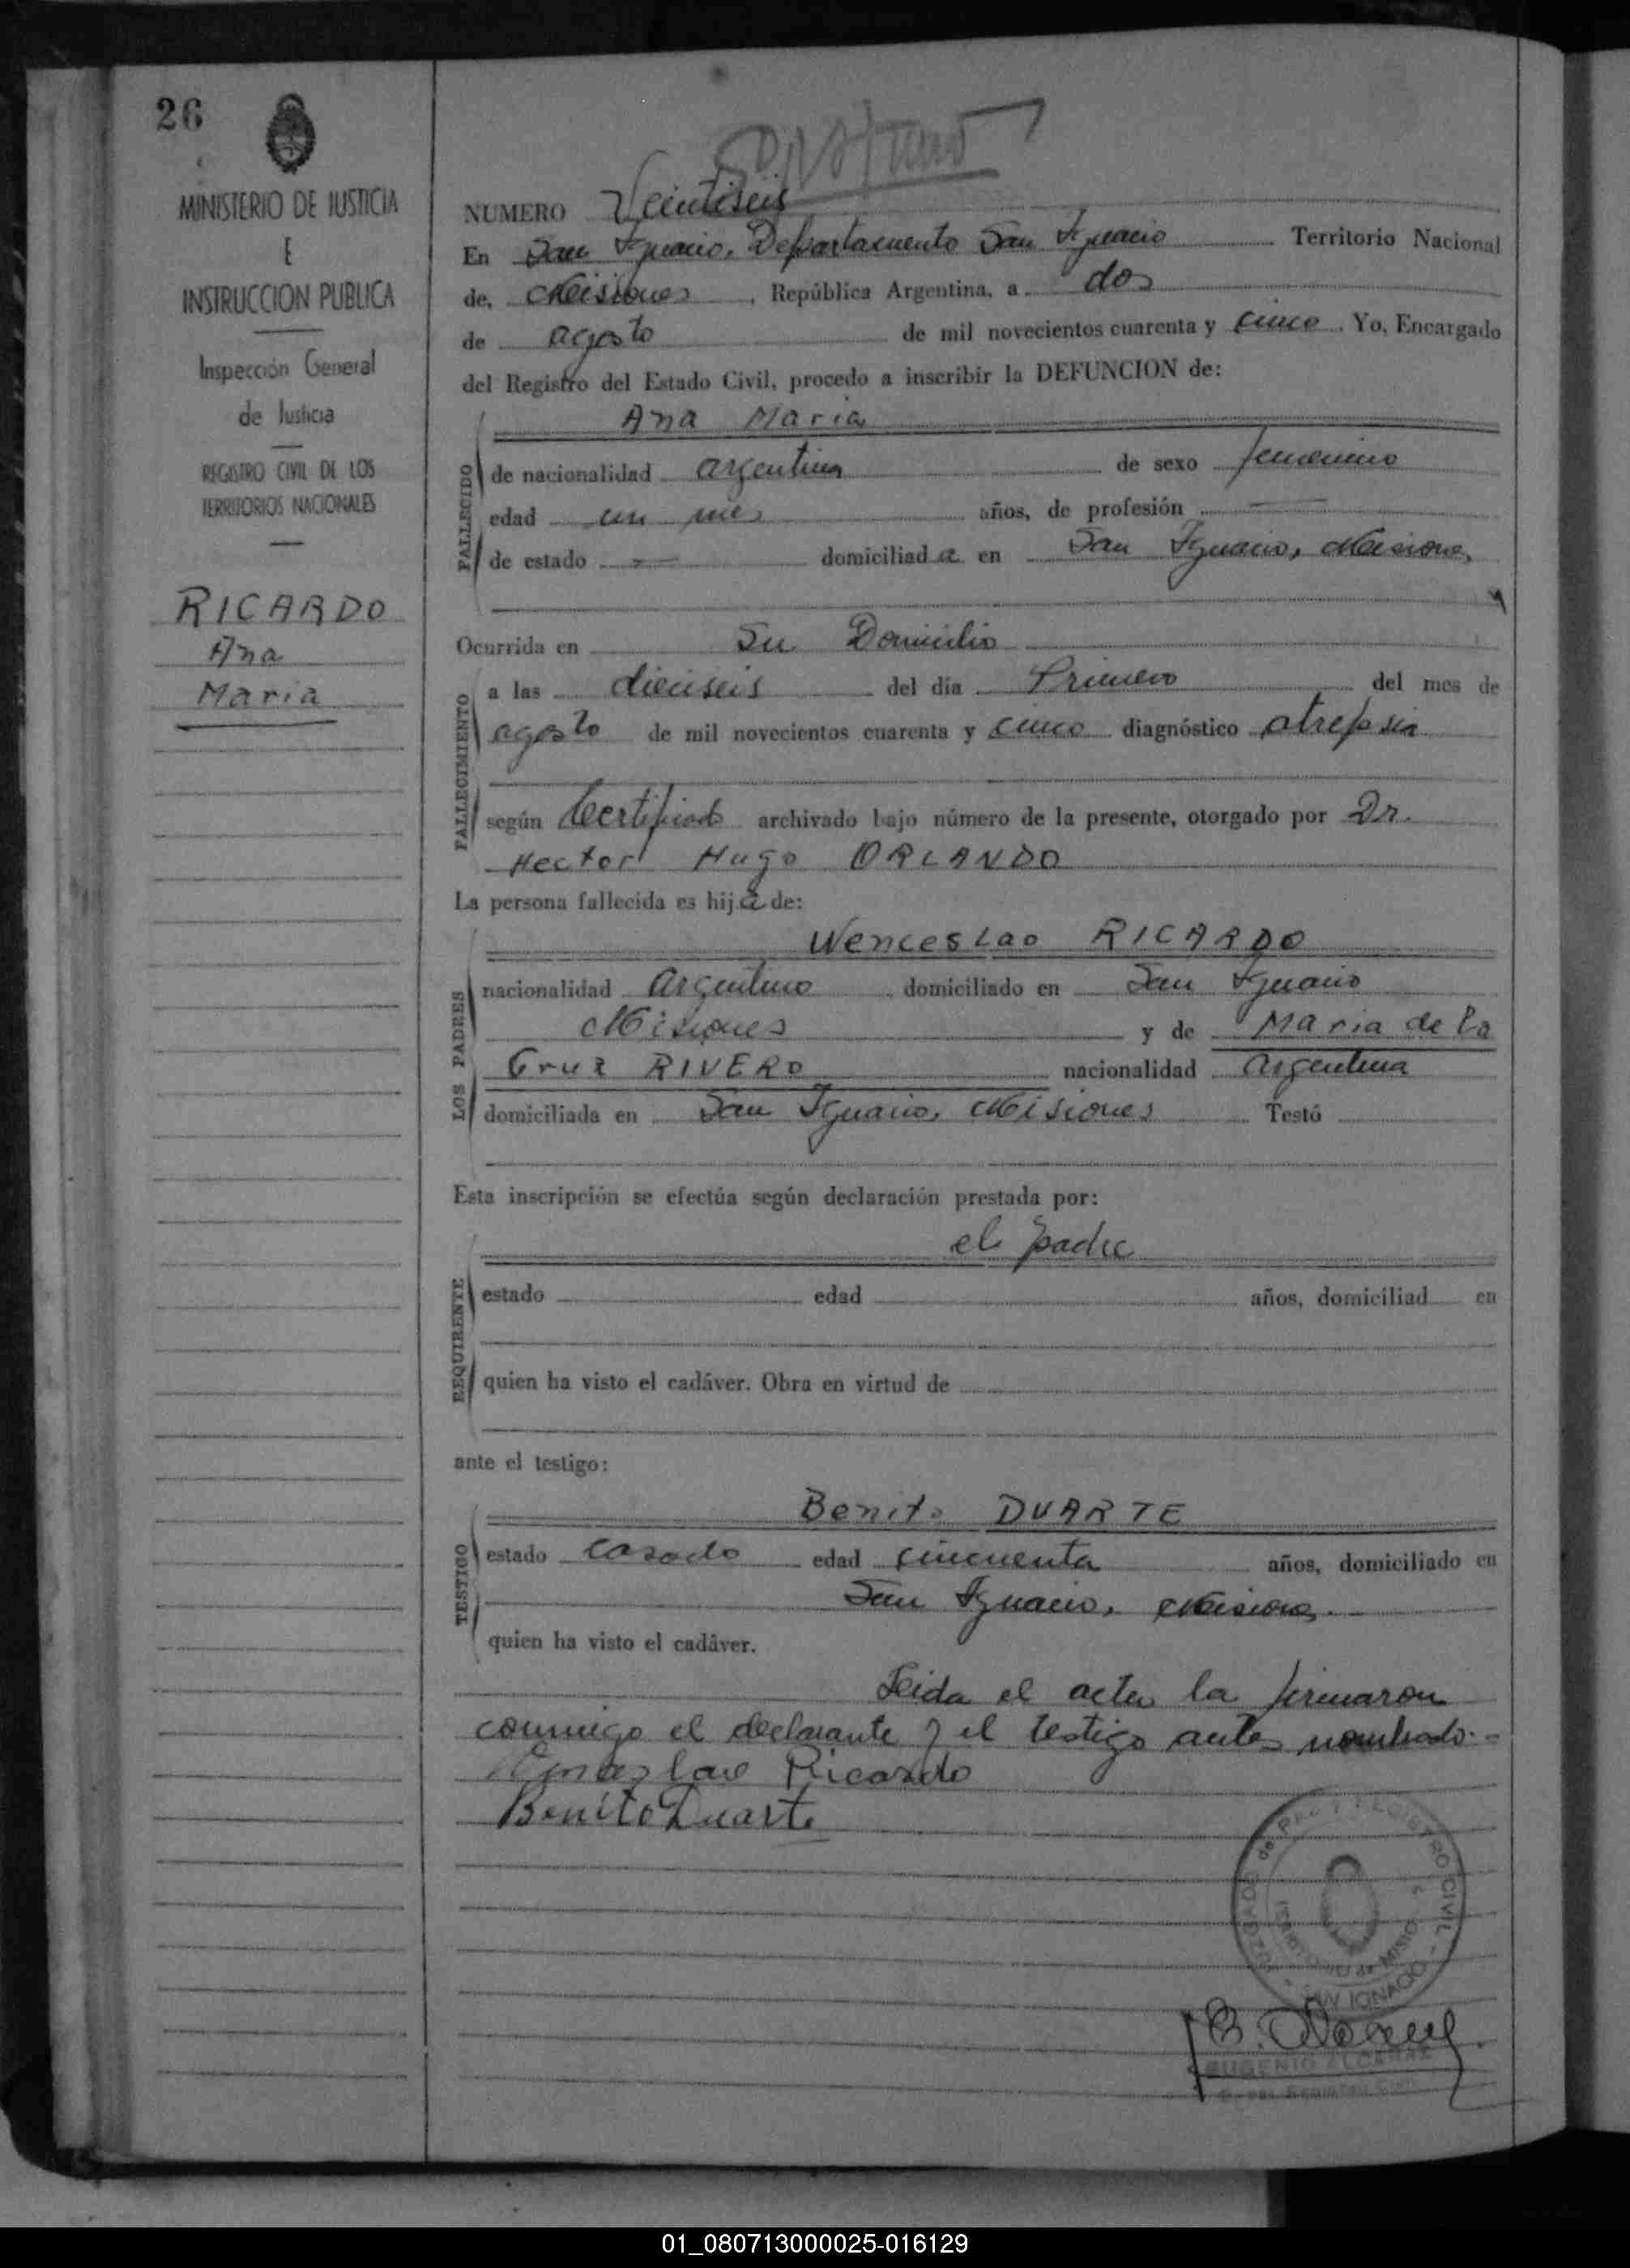 26
MINISTERIO DE JUSTICIA
E
INSTRUCCION PUBLICA
Inspección General
de Justicia
REGISTRO CIVIL DE LOS
TERRITORIOS NACIONALES
RICARDO
Ana
Maria
NUMERO Veintiseis
En San Ignacio, Departamento San Ignacio Territorio Nacional
de, Misiones, República Argentina, a dos
de agosto de mil novecientos cuarenta y cinco. Yo, Encargado
del Registro del Estado Civil, procedo a inscribir la DEFUNCION de:
Ana Maria
FALLECIDO
de nacionalidad argentina de sexo femenino
edad un mes años, de profesión —
de estado — domiciliada en San Ignacio, Misiones,
Ocurrida en Su Domicilio
FALLECIMIENTO
a las dieciseis del día Primero del mes de
agosto de mil novecientos cuarenta y cinco diagnóstico atrepsia
según Certificado archivado bajo número de la presente, otorgado por Dr.
Hector Hugo ORLANDO
La persona fallecida es hija de:
LOS PADRES
Wenceslao RICARDO
nacionalidad argentino domiciliado en San Ignacio
Misiones y de Maria de la
Cruz RIVERO nacionalidad argentina
domiciliada en San Ignacio, Misiones Testó
Esta inscripción se efectúa según declaración prestada por:
el padre
REQUIRENTE
estado edad años, domiciliad en
quien ha visto el cadáver. Obra en virtud de
ante el testigo:
Benito DUARTE
TESTIGO
estado casado edad cincuenta años, domiciliado en
San Ignacio, Misiones.
quien ha visto el cadáver.
Leida el acta la firmaron
conmigo el declarante y el testigo antes nombrado.-
Ricardo
Benito Duarte
JUZGADO de PAZ Y REGISTRO CIVIL
SAN IGNACIO
EUGENIO ALCARAZ
01_080713000025-016129